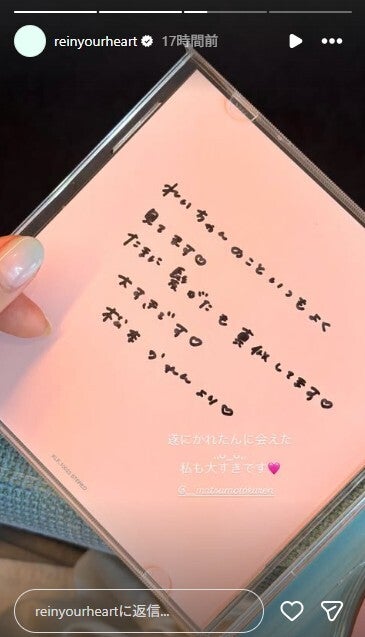 reinyourheart 17時間前
れいちゃんのこといつもよく
見てます♡
たまに髪がたも真似してます♡
大すきです♡
松本かれんより♡
遂にかれたんに会えた
私も大すきです💗
@_matsumotokaren
reinyourheartに返信...